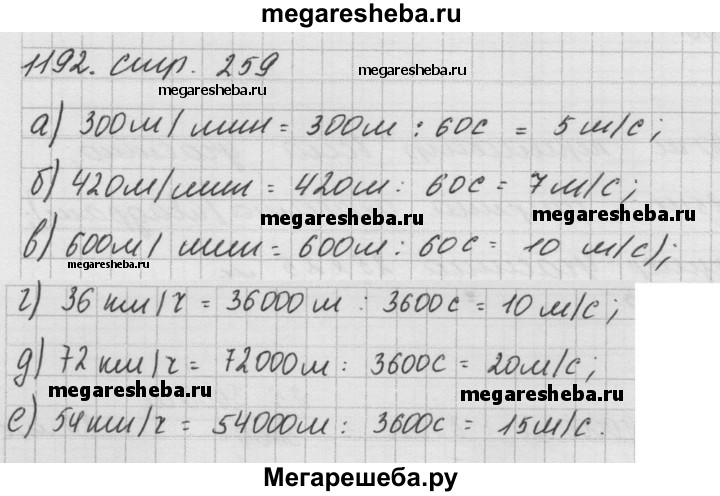 megaresheba.ru
1192. стр. 259
megaresheba.ru
megaresheba.ru
а) 300м/мин = 300м : 60с = 5 м/с;
б) 420м/мин = 420м : 60с = 7м/с;
megaresheba.ru
megaresheba.ru
в) 600м/мин = 600м : 60с = 10 м/с);
megaresheba.ru
г) 36 км/ч = 36000м : 3600с = 10 м/с;
д) 72 км/ч = 72000м : 3600с = 20м/с;
megaresheba.ru
megaresheba.ru
е) 54км/ч = 54000м : 3600с = 15м/с.
Мегарешеба.ру